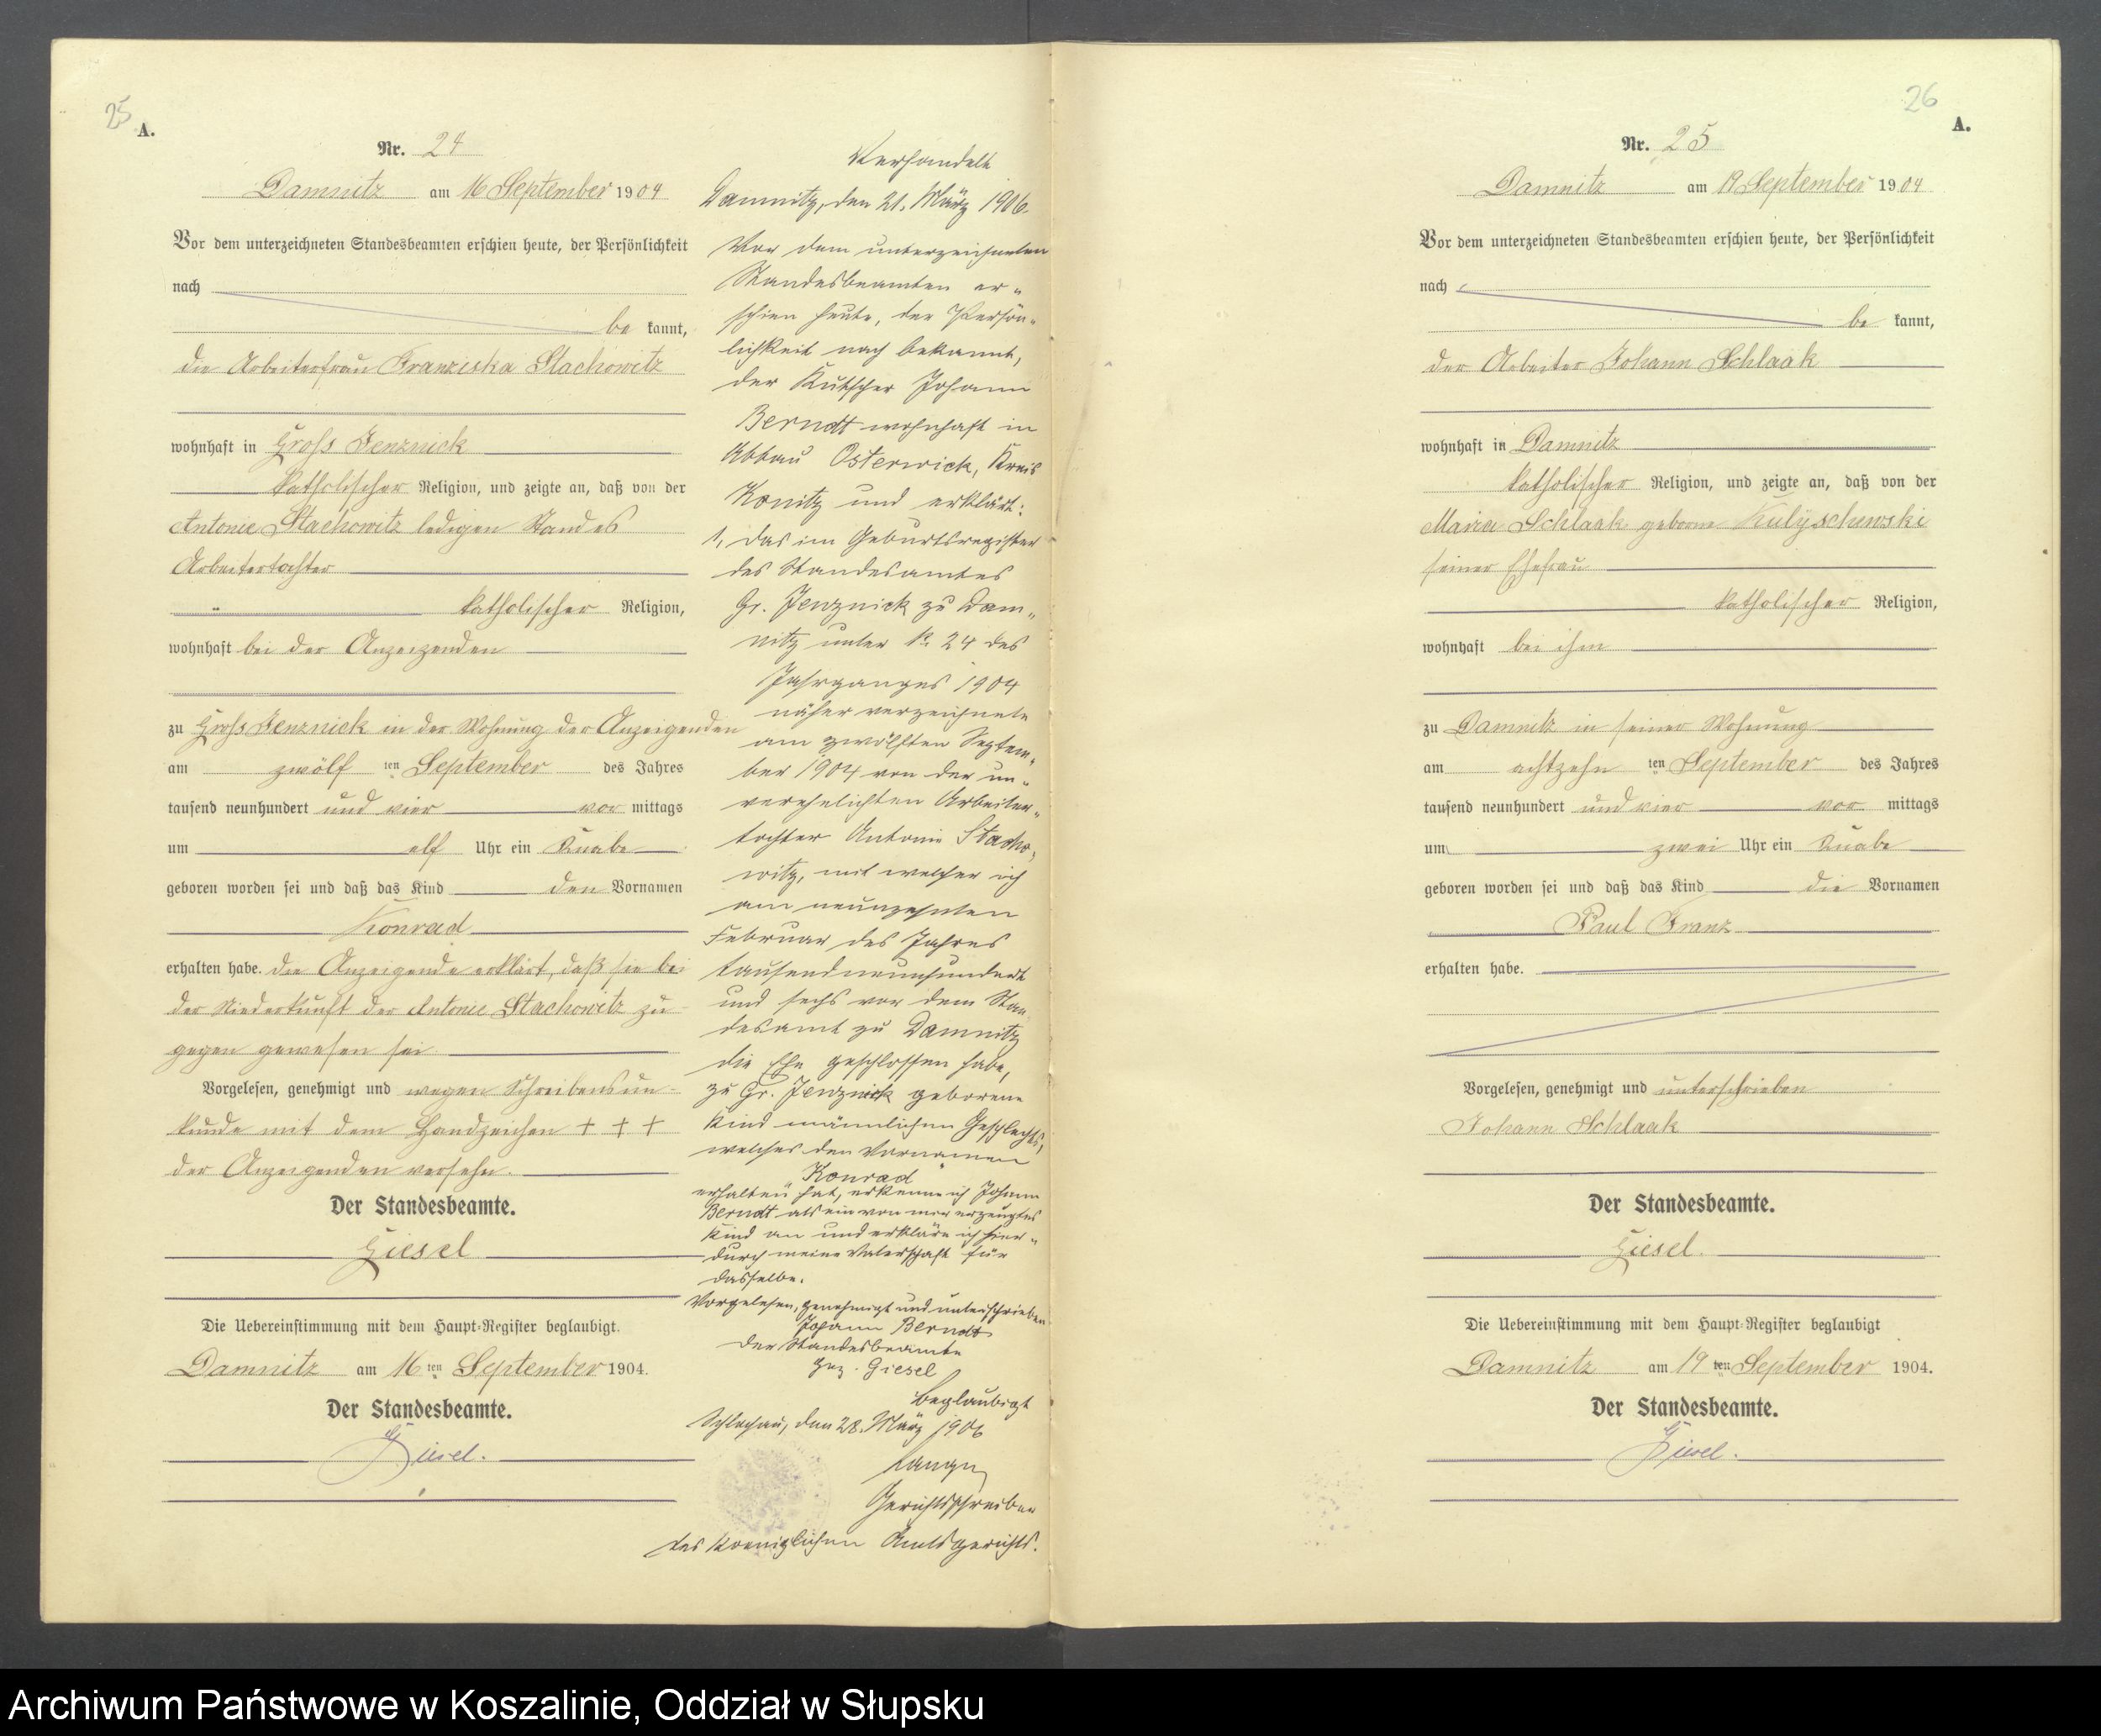 25
A.
Nr. 24
Damnitz am 16 September 1904
Vor dem unterzeichneten Standesbeamten erschien heute, der Persönlichkeit
nach
be kannt,
die Arbeiterfrau Franziska Stachowitz
wohnhaft in Gross Jenznick
katholischer Religion, und zeigte an, daß von der
Antonie Stachowitz ledigen Standes
Arbeitertochter
katholischer Religion,
wohnhaft bei der Anzeigenden
zu Gross Jenznick in der Wohnung der Anzeigenden
am zwölf ten September des Jahres
tausend neunhundert und vier vor mittags
um elf Uhr ein Knabe
geboren worden sei und daß das Kind den Vornamen
Konrad
erhalten habe. die Anzeigende erklärt, daß sie bei
der Niederkunft der Antonie Stachowitz zu
gegen gewesen sei
Vorgelesen, genehmigt und wegen Schreibensun-
kunde mit dem Handzeichen + + +
der Anzeigenden versehn.
Der Standesbeamte.
Giesel
Die Uebereinstimmung mit dem Haupt-Register beglaubigt.
Damnitz am 16 ten September 1904.
Der Standesbeamte.
Giesel.
Verhandelt
Damnitz, den 21. März 1906.
Vor dem unterzeichneten
Standesbeamten er-
schien heute, der Persön-
lichkeit nach bekannt,
der Kutscher Johann
Berndt wohnhaft in
Abbau Osterwick, Kreis
Konitz und erklärt:
1, das im Geburtsregister
des Standesamtes
Gr. Jenznick zu Dam-
nitz unter No 24 des
Jahrganges 1904
näher verzeichnete
am zwölften Septem-
ber 1904 von der un-
verehelichten Arbeiter-
tochter Antonie Stacho-
witz, mit welcher ich
am neunzehnten
Februar des Jahres
tausendneunhundert
und sechs vor dem Stan-
desamt zu Damnitz
die Ehe geschlossen habe,
zu Gr. Jenznick geborene
Kind männlichen Geschlechts,
welches den Vornamen
"Konrad"
erhalten hat, erkenne ich Johann
Berndt als ein von mir erzeugtes
Kind an und erkläre ich hier-
durch meine Vaterschaft für
dasselbe.
Vorgelesen, genehmigt und unterschrieben
Johann Berndt
Der Standesbeamte
gez. Giesel
Beglaubigt
Schlochau, den 28. März 1906
Gerichtsschreiber
des Koeniglichen Amtsgerichts.
26
A.
Nr. 25
Damnitz am 19 September 1904
Vor dem unterzeichneten Standesbeamten erschien heute, der Persönlichkeit
nach
be kannt,
der Arbeiter Johann Schlaak
wohnhaft in Damnitz
katholischer Religion, und zeigte an, daß von der
Maria Schlaak geborene Kulyschewski
seiner Ehefrau
katholischer Religion,
wohnhaft bei ihm
zu Damnitz in seiner Wohnung
am achtzehn ten September des Jahres
tausend neunhundert und vier vor mittags
um zwei Uhr ein Knabe
geboren worden sei und daß das Kind die Vornamen
Paul Franz
erhalten habe.
Vorgelesen, genehmigt und unterschrieben
Johann Schlaak
Der Standesbeamte.
Giesel.
Die Uebereinstimmung mit dem Haupt-Register beglaubigt
Damnitz am 19 ten September 1904.
Der Standesbeamte.
Giesel.
Archiwum Państwowe w Koszalinie, Oddział w Słupsku